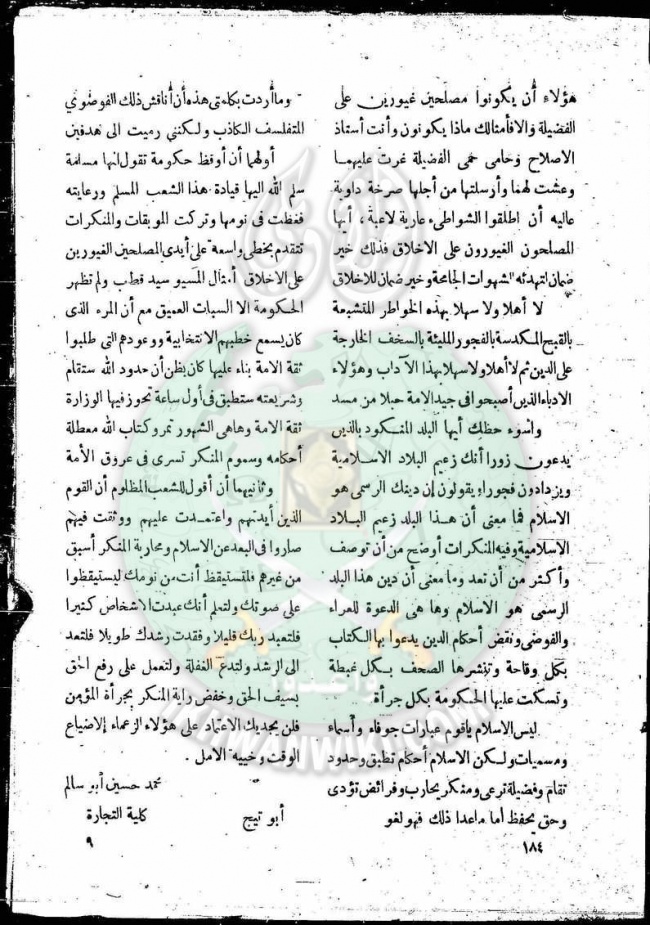 هؤلاء أن يكونوا مصلحين غيورين على
الفضيلة والا فأمثالك ماذا يكونون وأنت أستاذ
الاصلاح وحامى حمى الفضيلة غرت عليهما
وعشت لهما وأرسلتها من أجلها صرخة داوية
عاليه أن اطلقوا الشواطىء عارية لاعبة ، أيها
المصلحون الغيورون على الاخلاق فذلك خير
ضمان لتهدئه الشهوات الجامحة وخير ضمان للاخلاق
لا أهلا ولا سهلا بهذه الخواطر المتشيعة
بالقبح المكدسة بالفجور المليئة بالسخف الخارجة
على الدين ثم لا أهلا ولا سهلا بهذا الآداب وهؤلاء
الادباء الذين أصبحوا فى جيد الامة حبلا من مسد
واسوء حظك أيها البلد المنكود بالذين
يدعون زورا أنك زعيم البلاد الاسلامية
ويزدادون فجورا يقولون إن دينك الرسمى هو
الاسلام فما معنى أن هذا البلد زعيم البلاد
الاسلامية وفيه المنكرات أوضح من أن توصف
وأكثر من أن تعد وما معنى أن دين هذا البلد
الرسمى هو الاسلام وها هى الدعوة للعراء
والفوضى ونقض أحكام الدين يدعوا بها الكتاب
بكل وقاحة وتنشرها الصحف بكل غبطة
وتسكت عليها الحكومة بكل جرأة.
ليس الاسلام يا قوم عبارات جوفاء وأسماء
ومسميات ولكن الاسلام أحكام تطبق وحدود
تقام وفضيلة ترعى ومنكر يحارب وفرائض تؤدى
وحق يحفظ أما ماعدا ذلك فهو لغو
١٨٤
وما أردت بكلمتى هذه أن أناقش ذلك الفوضوي
المتفلسف الكاذب ولكننى رميت الى هدفين
أولهما أن أوقظ حكومة تقول انها مسلمة
سلم الله اليها قيادة هذا الشعب المسلم ورعايته
فغطت فى نومها وتركت الموبقات والمنكرات
تتقدم بخطى واسعة على أيدى المصلحين الغيورين
على الاخلاق أمثال المسيو سيد قطب ولم تظهر
الحكومة الا السبات العميق مع أن المرء الذى
كان يسمع خطبهم الانتخابية ووعودهم التى طلبوا
ثقة الامة بناء عليها كان يظن أن حدود الله ستقام
وشريعته ستطبق فى أول ساعة تحوز فيها الوزارة
ثقة الامة وهاهى الشهور تمر وكتاب الله معطلة
أحكامه وسموم المنكر تسرى فى عروق الأمة
وثانيهما أن أقول للشعب المظلوم أن القوم
الذين أيدتهم واعتمدت عليهم ووثقت فيهم
صاروا فى البعد عن الاسلام ومحاربة المنكر أسبق
من غيرهم فلتستيقظ أنت من نومك ليستيقظوا
على صوتك ولتعلم أنك عبدت الاشخاص كثيرا
فلتعبد ربك قليلا وفقدت رشدك طويلا فلتعد
الى الرشد ولتدع الغفلة ولنعمل على رفع الحق
بسيف الحق وخفض راية المنكر بجرأة المؤمن
فلن يجديك الاعتماد على هؤلاء الزعماء إلا ضياع
الوقت وخيبه الامل .
محمد حسين أبو سالم
أبو تيج
كلية التجارة
٩